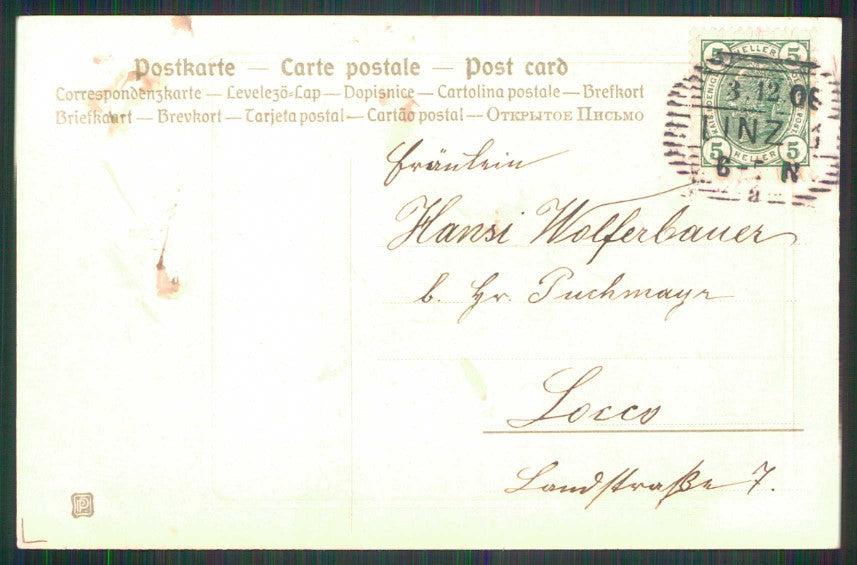 Postkarte — Carte postale — Post card
Correspondenzkarte — Levelezö-Lap — Dopisnice — Cartolina postale — Brefkort
Briefkaart — Brevkort — Tarjeta postal — Cartão postal — Открытое Письмо
5 HELLER 5
3.12 06
LINZ
6 - N
a
5 HELLER 5
1908
Fräulein
Hansi Wolferbauer
b. Hr. Puchmayr
Locco
Landstraße 7.